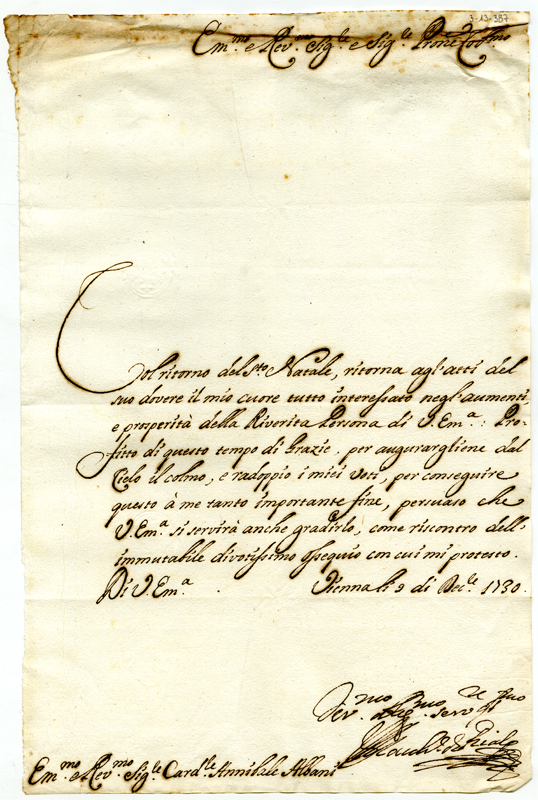 3-13-387
Em.mo e Rev.mo Sig.re e Sig.re Prone Col.mo
Col ritorno del S.to Natale, ritorna agl'atti del
suo dovere il mio cuore tutto interessato negl'aumenti,
e prosperità della Riverita Persona di V. Em.a: Pro-
fitto di questo tempo di Grazie, per augurargliene dal
Cielo il colmo, e radoppio i miei voti, per conseguire
questo à me tanto importante fine, persuaso che
V. Em.a si servirà anche gradirlo, come riscontro dell'
immutabile divotissimo ossequio con cui mi protesto.
Di V. Em.a Vienna li 9 di Dec.re 1730.
Em.mo e Rev.mo Sig.re Card.le Annibale Albani